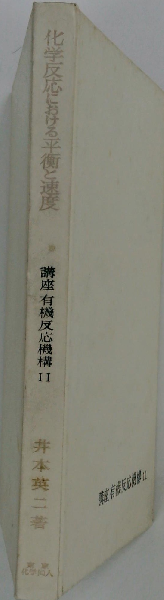 化学反応における平衡と速度
講座 有機反応機構 II
井本英二著
東京
化学同人
講座 有機反応機構 II